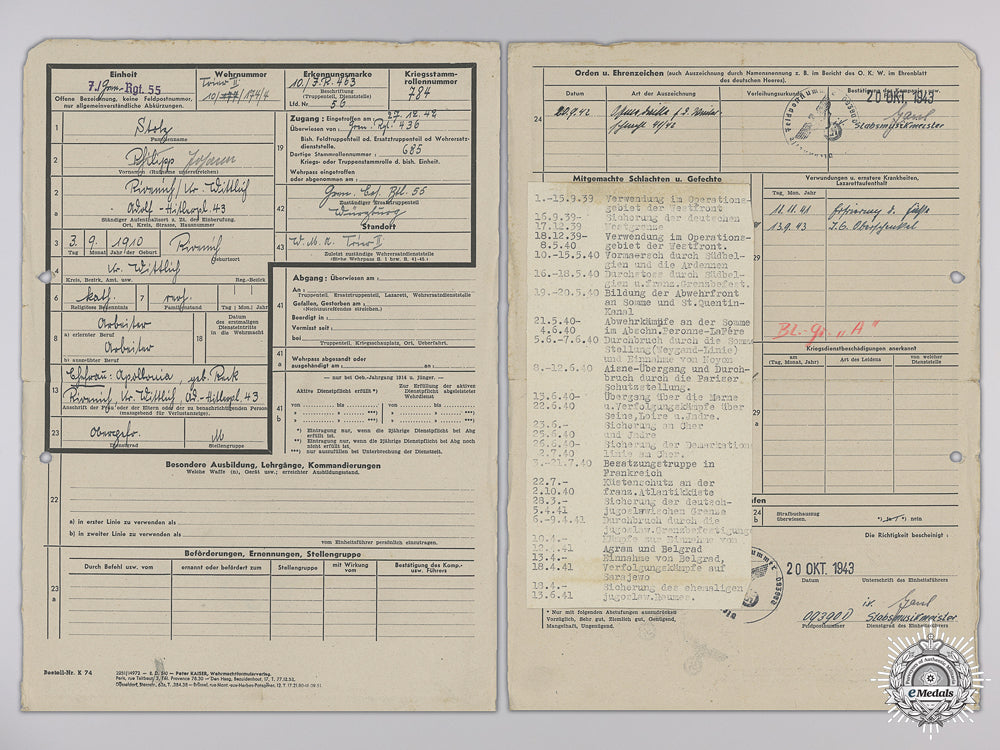 Einheit
7./Gren.-Rgt. 55
Offene Bezeichnung, keine Feldpostnummer,
nur allgemeinverständliche Abkürzungen.
Wehrnummer
Trier II
10/ 174/4
Erkennungsmarke
10./J.R. 463
Beschriftung
(Truppenteil, Dienststelle)
Lfd. Nr. 56
Kriegsstamm-
rollennummer
784
1
Stolz
Familienname
Philipp Johann
Vornamen (Rufname unterstreichen)
2
Rivenich/ Kr. Wittlich
a
Adolf-Hitlerpl. 43
Ständiger Aufenthaltsort z. Zt. der Einberufung.
Ort, Kreis, Strasse, Hausnummer
3
3. 9. 1910
Rivenich
Tag Monat Jahr der Geburt
Geburtsort
4
Kr. Wittlich
Kreis, Bezirk, Amt. usw.
Reg.-Bezirk
6
kath.
7
verh.
Religiöses Bekenntnis
Familienstand
Tag Mon. Jahr
8
Arbeiter
a) erlernter Beruf
Arbeiter
b) ausgeübter Beruf
18
Datum
des erstmaligen
Diensteintritts
in die
Wehrmacht
13
Ehefrau: Apollonia, geb. Reck
Rivenich, Kr. Wittlich, Ad.-Hitlerpl. 43
Anschrift der Frau oder der Eltern oder der zu benachrichtigenden Person
(massgebend für Verlustanzeige).
23
Obergefr.
M
Dienstgrad
Stellengruppe
19
Zugang: Eingetroffen am 27.12.42
Überwiesen von Gren. Rgt. 436
Bish. Feldtruppenteil od. Ersatztruppenteil od. Wehrersatz-
dienststelle.
Dortige Stammrollennummer: 685
Kriegs- oder Truppenstammrolle d. bish. Einheit.
Wehrpass eingetroffen
oder abgenommen am
42
Gren. Ers. Btl. 55
Zuständiger Ersatztruppenteil
Würzburg
Standort
43
W.M.A. Trier II
Zuletzt zuständige Wehrersatzdienststelle
41
Abgang: Überwiesen am
An:
Truppenteil, Ersatztruppenteil, Lazarett, Wehrersatzdienststelle
Gefallen, Gestorben am:
(Nichtzutreffendes streichen.)
Beerdigt in:
Vermisst seit:
bei
Truppenteil, Kriegsschauplatz, Ort, Ueberfall.
41
a
Wehrpass abgesandt oder
ausgehändigt am an
41
b
— nur bei Geb.-Jahrgang 1914 u. Jünger. —
Aktive Dienstpflicht erfüllt *)
Zur Erfüllung der aktiven
Dienstpflicht weitergeleisteter
Wehrdienst
von bis
von bis
*) Eintragung nur, wenn die 2jährige Dienstpflicht bei Abg
erfüllt ist.
**) Eintragung nur, wenn die 2jährige Dienstpflicht bei Abg noch
nicht erfüllt ist.
***) nur auszufüllen bei Unterbrechung der Dienstzeit.
Besondere Ausbildung, Lehrgänge, Kommandierungen
Welche Waffe (n), Gerät usw.; erreichter Ausbildungsstand.
22
a) in erster Linie zu verwenden als
b) in zweiter Linie zu verwenden als
vom Einheitsführer persönlich einzutragen.
Beförderungen, Ernennungen, Stellengruppe
23
a
Durch Befehl usw. vom
ernannt oder befördert zum
Stellengruppe
mit Wirkung
vom
Bestätigung des Komp.-
usw. Führers
Bestell-Nr. K 74
Peter KAISER, Wehrmachtformularverlag.
Orden u. Ehrenzeichen (auch Auszeichnung durch Namensnennung z. B. im Bericht des O. K. W. im Ehrenblatt
des deutschen Heeres).
24
Datum
Art der Auszeichnung
Verleihungsurkunde
20 OKT. 1943
Feldpostnum
09390
Stabsmusikmeister
Mitgemachte Schlachten u. Gefechte
1.-15.9.39 Verwendung im Operations-
gebiet der Westfront
16.9.39- Sicherung der deutschen
17.12.39 Westgrenze
18.12.39- Verwendung im Operations-
8.5.40 gebiet der Westfront.
10.-15.5.40 Vormarsch durch Südbel-
gien und die Ardennen
16.-18.5.40 Durchstoss durch Südbel-
gien u.franz.Grenzbefest.
19.-20.5.40 Bildung der Abwehrfront
an Somme und St.Quentin-
Kanal
21.5.40- Abwehrkämpfe an der Somme
4.6.40 im Abschn.Peronne-LaFère
5.6.-7.6.40 Durchbruch durch die Somm
Stellung(Weygand-Linie)
und Einnahme von Noyon
8.-12.6.40 Aisne-Übergang und Durch-
bruch durch die Pariser
Schutzstellung.
13.6.40- Übergang über die Marne
22.6.40 u.Verfolgungskämpfe über
Seine,Loire u.Indre.
23.6.- Sicherung an Cher
25.6.40 und Indre
26.6.40- Sicherung der Demarkation
2.7.40 linie an Cher.
3.-21.7.40 Besatzungstruppe in
Frankreich
22.7.- Küstenschutz an der
2.10.40 franz.Atlantikküste
28.3.- Sicherung der deutsch-
5.4.41 jugoslawischen Grenze
6.-9.4.41 Durchbruch durch die
jugoslaw.Grenzbefestigung
10.4.- Kämpfe zur Einnahme von
12.4.41 Agram und Belgrad
13.4.- Einnahme von Belgrad,
18.4.41 Verfolgungskämpfe auf
Sarajewo
19.4.- Sicherung des ehemaligen
13.6.41 jugoslaw.Raumes.
Verwundungen u. ernstere Krankheiten,
Lazarettaufenthalt
Tag, Mon. Jahr
11.11.41
13.9.43
J.G. Oberschenkel
Bl.-Gr. "A"
Kriegsdienstbeschädigungen anerkannt
am
(Tag, Mon. Jahr)
Art des Leidens
von welcher
Dienststelle
29
Strafbuchauszug
überwiesen.
nein
Die Richtigkeit bescheinigt:
20 OKT. 1943
Datum
Unterschrift des Einheitsführers
09390D
Feldpostnummer
Stabsmusikmeister
Dienstgrad des Einheitsführers
* Nur mit folgenden Abstufungen auszudrücken
Vorzüglich, Sehr gut, Ziemlich gut, Genügend,
Mangelhaft, Ungenügend.
eMedals